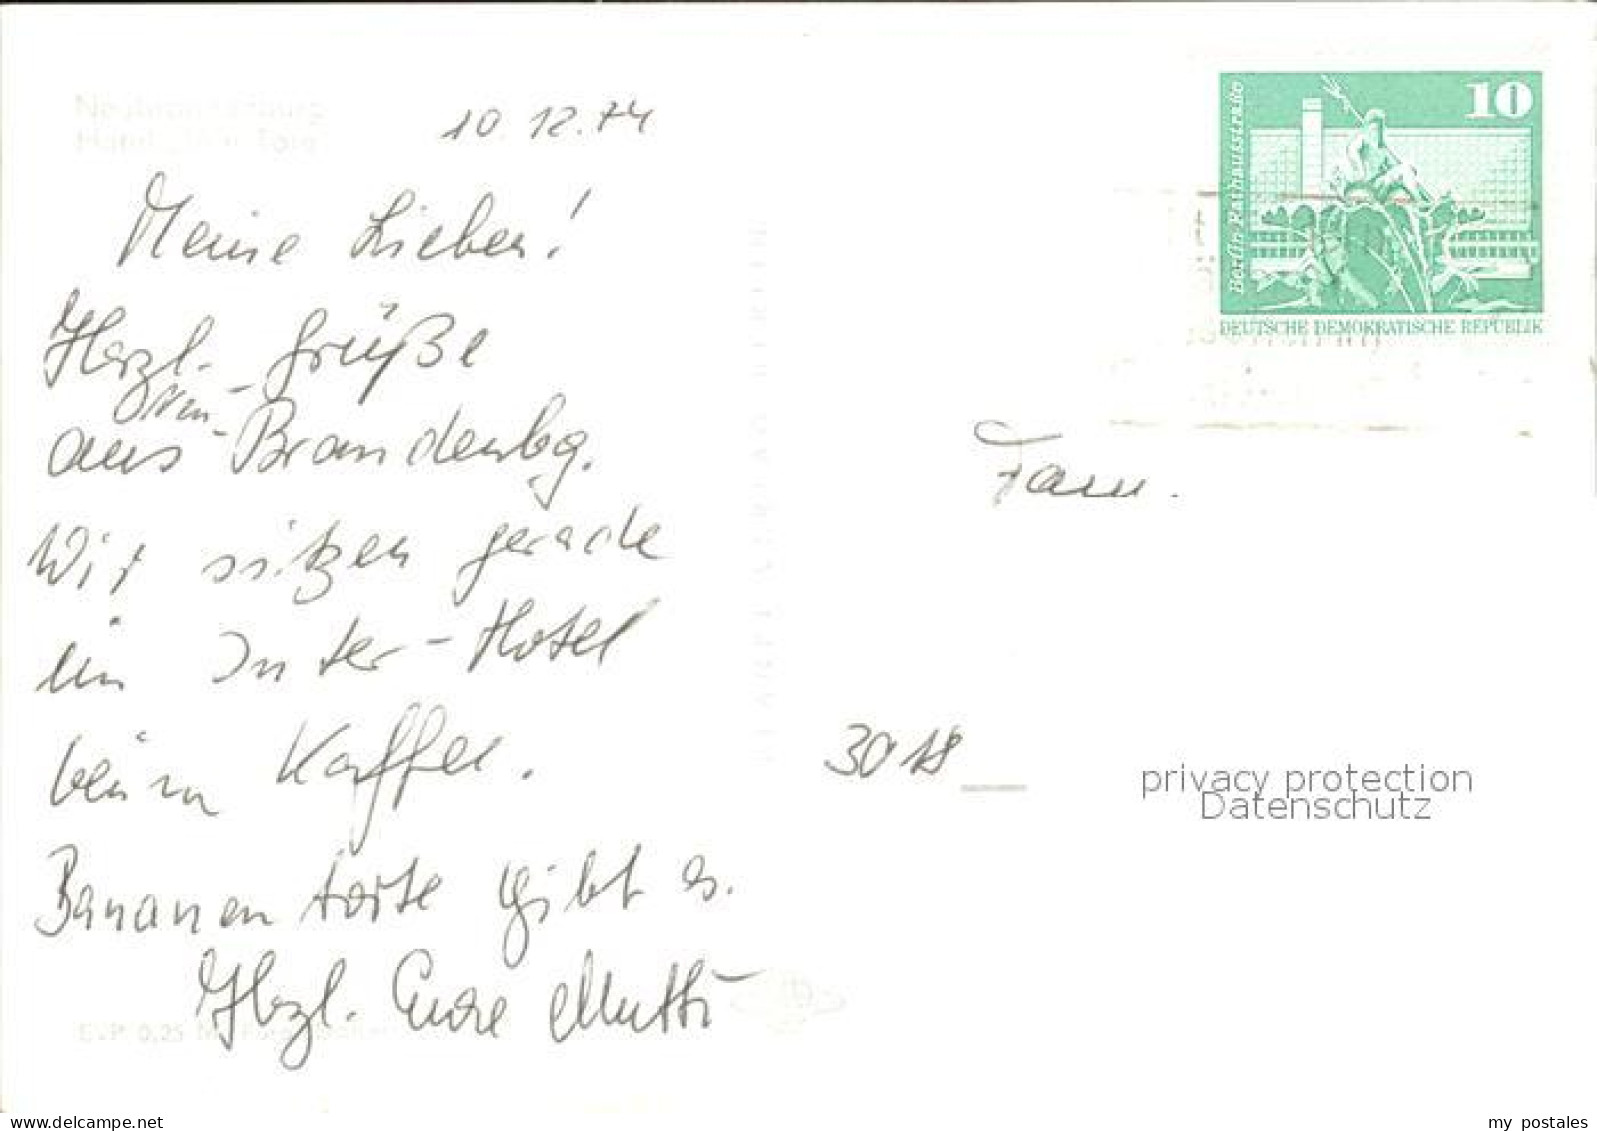 10.12.74
Meine Lieben!
Herzl. Grüße
aus Neu-Brandenbg.
Wir sitzen gerade
im Inter-Hotel
beim Kaffee.
Bananentorte gibt es.
Herzl. Eure Mutti
EVP 0,25 M
10
Berlin, Rathausstraße
DEUTSCHE DEMOKRATISCHE REPUBLIK
Fam.
3018
privacy protection
Datenschutz
delcampe.net
my_postales